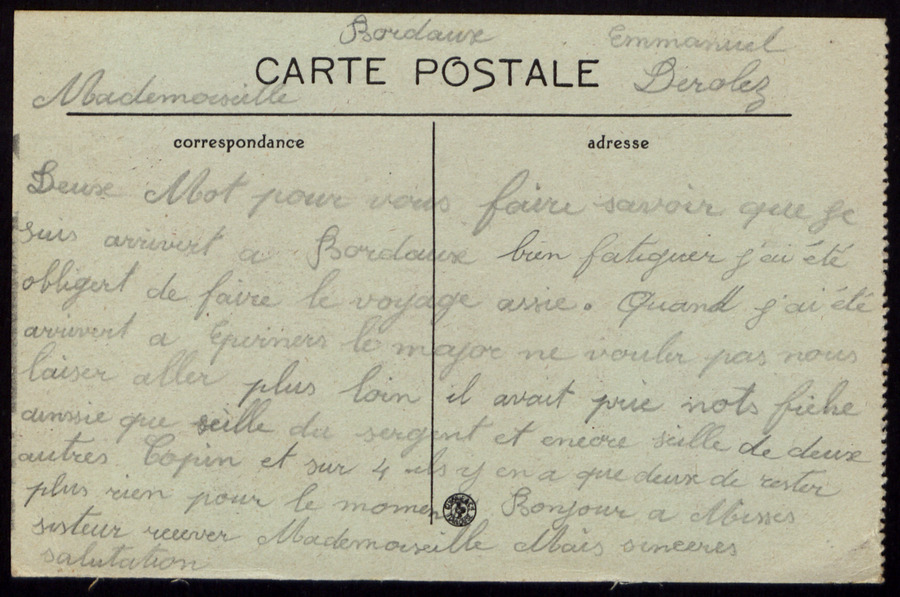 Bordaux Emmanuel
CARTE POSTALE Derolez
Mademoiselle
correspondance adresse
Deux Mot pour vous faire savoir que je
suis arrivert a Bordaux bien fatiguer j'ai été
obligert de faire le voyage assie. Quand j'ai été
arrivert a Eperners le major ne vouler pas nous
laiser aller plus loin il avait prie nots fiche
aussie que seille du sergent et encore seille de deux
autres Copin et sur 4 ils y en a que deux de rester
plus rien pour le momen Bonjour a Misses
sisteur recever Mademoiselle Mais sinceres
salutation